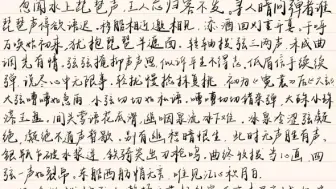 忽闻水上琵琶声，主人忘归客不发。寻声暗问弹者谁
琵琶声停欲语迟。移船相近邀相见，添酒回灯重开宴。千呼
万唤始出来，犹抱琵琶半遮面。转轴拨弦三两声，未成曲
调先有情。弦弦掩抑声声思，似诉平生不得志。低眉信手续续
弹，说尽心中无限事。轻拢慢捻抹复挑，初为《霓裳》后《六幺》
大弦嘈嘈如急雨，小弦切切如私语。嘈嘈切切错杂弹，大珠小珠
落玉盘。间关莺语花底滑，幽咽泉流冰下难。冰泉冷涩弦凝
绝，凝绝不通声暂歇。别有幽愁暗恨生，此时无声胜有声。
银瓶乍破水浆迸，铁骑突出刀枪鸣。曲终收拨当心画，四
弦一声如裂帛。东船西舫悄无言，唯见江心秋月白。